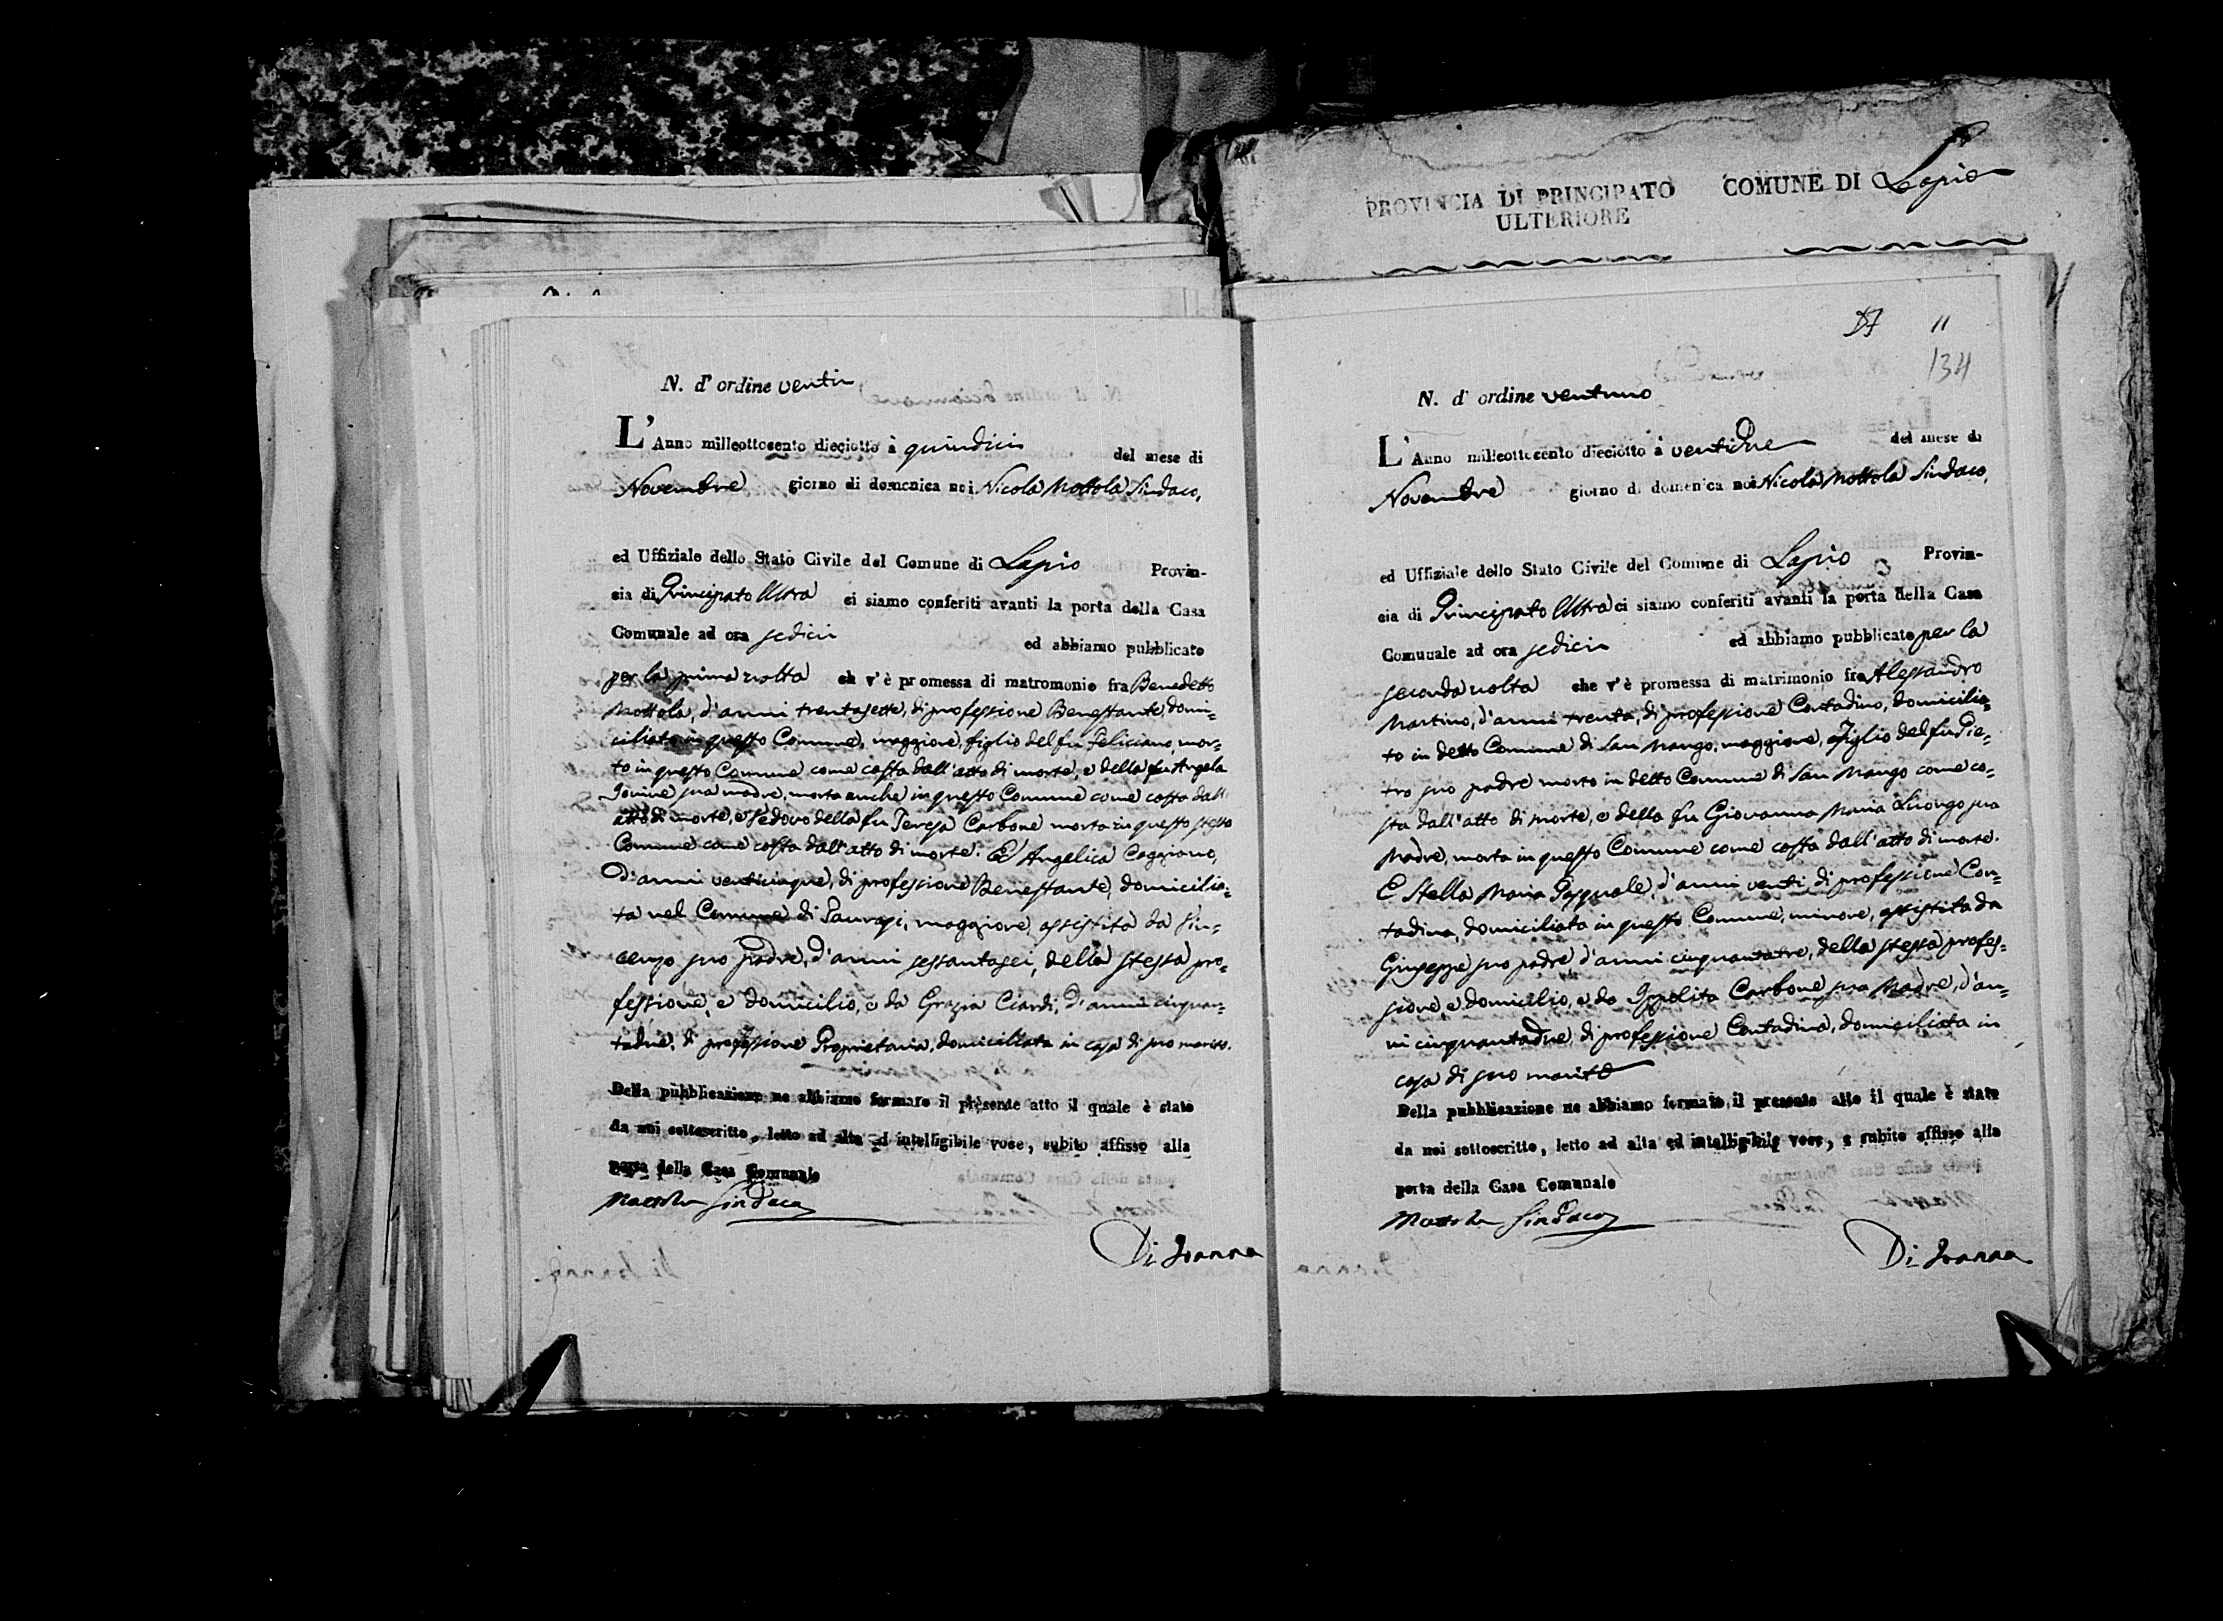 PROVINCIA DI PRINCIPATO
ULTERIORE
COMUNE DI Lapio
N. d' ordine venti
L' Anno milleottocento dieciotto à quindici del mese di
Novembre giorno di domenica noi Nicola Mottola Sindaco,
ed Uffiziale dello Stato Civile del Comune di Lapio Provin-
cia di Principato Ultra ci siamo conferiti avanti la porta della Casa
Comunale ad ora sedici ed abbiamo pubblicato
per la prima volta ch v'è promessa di matromonio fra Benedetto
Mottola, d'anni trentasette, di professione Benestante, domi=
ciliato in questo Comune, maggiore, figlio del fu Feliciano, mor=
to in questo Comune come costa dall'atto di morte, e della fu Angela
Iovine sua madre, morta anche in questo Comune come costa dall'
atto di morte, e Vedovo della fu Teresa Carbone morta in questo stesso
Comune come costa dall'atto di morte. Ed Angelica Caggiano,
d'anni venticinque, di professione Benestante, domicilia=
ta nel Comune di Taurasi, maggiore, assistita da Vin=
cenzo suo padre, d'anni sessantasei, della stessa pro=
fessione, e domicilio, e da Grazia Ciardi, d'anni cinquan=
tadue, di professione Proprietaria, domiciliata in casa di suo marito.
Della pubblicazione ne abbiamo formato il presente atto il quale è stato
da noi sottoscritto, letto ad alta ed intelligibile voce, subito affisso alla
porta della Casa Comunale
Mottola Sindaco
Di Ioanna
11
134
N. d' ordine ventuno
L' Anno milleottocento dieciotto à ventidue del mese di
Novembre giorno di domenica noi Nicola Mottola Sindaco,
ed Uffiziale dello Stato Civile del Comune di Lapio Provin-
cia di Principato Ultra ci siamo conferiti avanti la porta della Casa
Comunale ad ora sedici ed abbiamo pubblicato per la
seconda volta che v'è promessa di matrimonio fra Alessandro
Martino, d'anni trenta, di professione Contadino, domicilia=
to in detto Comune di San Mango, maggiore, figlio del fu Pie=
tro suo padre morto in detto Comune di San Mango come co=
sta dall'atto di morte, e della fu Giovanna Maria Luongo sua
Madre, morta in questo Comune come costa dall'atto di morte.
E Stella Maria Pasquale, d'anni venti, di professione Con=
tadina, domiciliata in questo Comune, minore, assistita da
Giuseppe suo padre d'anni cinquantatre, della stessa profes=
sione, e domicilio, e da Ippolita Carbone sua Madre, d'an=
ni cinquantadue, di professione Contadina, domiciliata in
casa di suo marito
Della pubblicazione ne abbiamo formato il presente atto il quale è stato
da noi sottoscritto, letto ad alta ed intelligibile voce, e subito affisso alla
porta della Casa Comunale
Mottola Sindaco
Di Ioanna